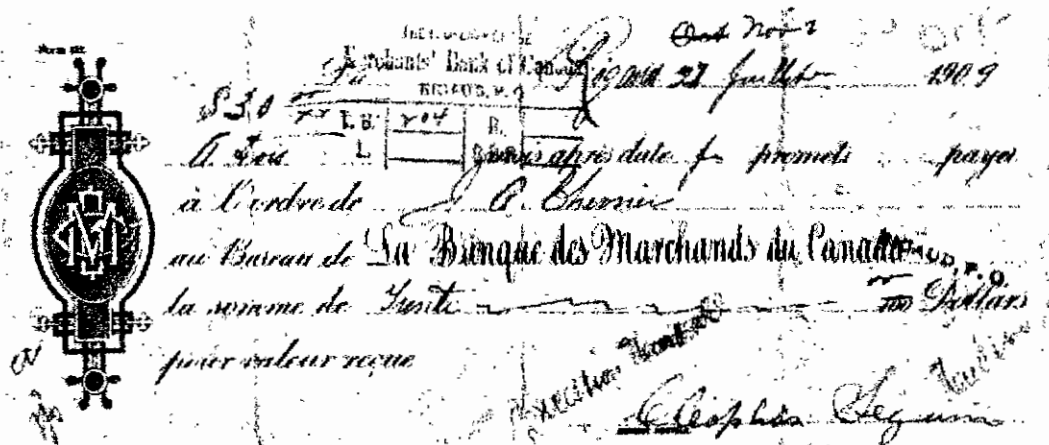 Oct Nov 2
Merchants' Bank of Canada
RIGAUD, P.Q.
Rigaud 27 Juillet 1909
$30 00/xx
L. B. 204 B.
L.
A trois mois après date je promets payer
à l'ordre de J. A. Chenier
au Bureau de La Banque des Marchands du Canada RIGAUD, P.Q.
la somme de Trente Dollars
pour valeur reçue
Cléophas Seguin